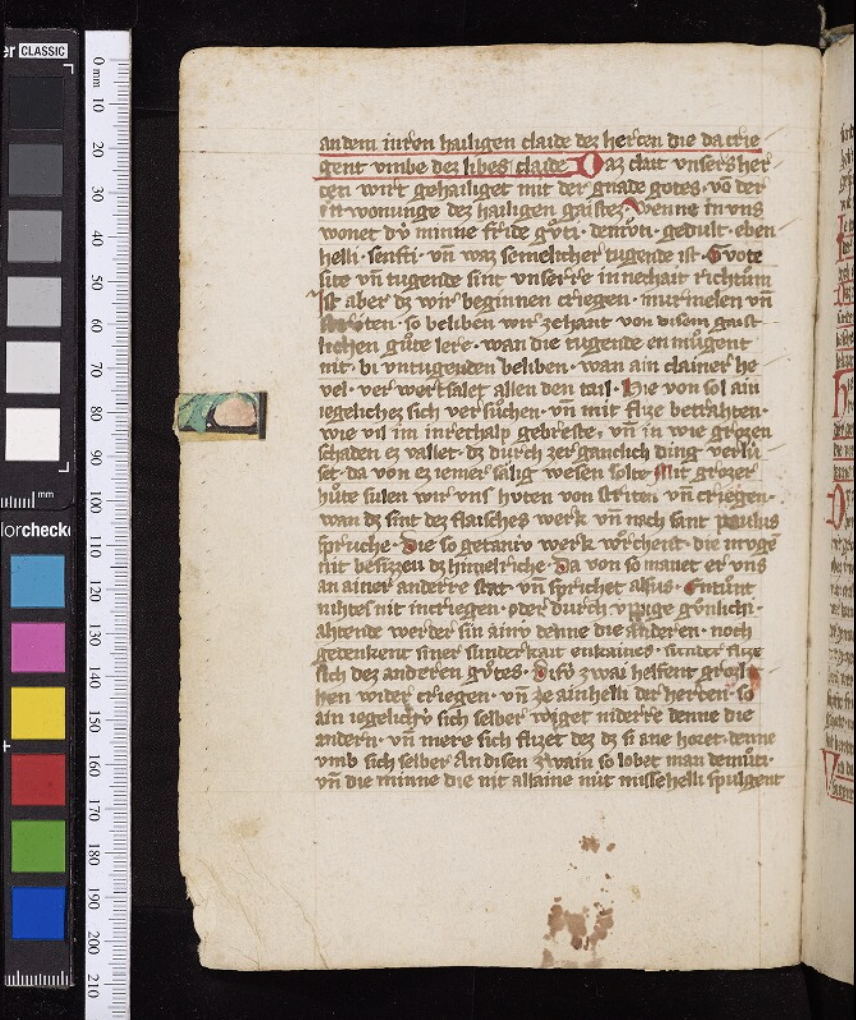 er CLASSIC
0 mm 10 20 30 40 50 60 70 80 90 100 110 120 130 140 150 160 170 180 190 200 210
mm
lorchecke
andern iuren hailigen claide dez hercen die da crie
gent vmbe dez libes claide Daz clait vnsers her
cen wirt gehailiget mit der gnade gotes · vō der
in wonunge dez hailigen gaistez · Wenne in vns
wonet dv́ minne fride gůti · demůti · gedult · eben
helli · senfti · vn̄ waz semelicher tugende ist · Gvote
site vn̄ tugende sint vnserre innechait richtům
Ist aber dz wir beginnen criegen · murmelen vn̄
so beliben wir zehant von disem gaist
lichen gůte lere · wan die tugende en můgent
nit · bi vntugenden beliben · wan ain clainer he
vel · ver wertsalet allen den tail · Hie von sol ain
iegelichez sich ver sůchen · vn̄ mit flize betrahten ·
wie vil im inrechalp gebreste · vn̄ in wie grozen
schaden ez vallet · dz durch zer ganclich ding verlu
set · da von ez iemer sälig wesen solte Mit grozer
hůte sulen wir vns hvten von striten vn̄ criegen ·
wan dz sint dez flaisches werk vn̄ nach sant paulus
spruche · Die so getaniv werk wrchent · die mvgē
nit besizzen dz himelriche · Da von so manet er vns
an ainer anderre stat · vn̄ sprichet alsus ·
nihtes nit in criegen · oder durch vppige gůnlichi ·
ahtende werder sin ainv denne die anderen · noch
gedenkent siner sunderkait enkaines · sunder flize
sich dez anderen gůtes · Disv́ zwai helfent
hen wider criegen · vn̄ ze ainhelli der hercen · so
ain iegelichv́ sich selber wiget niderre denne die
andern · vn̄ mere sich flizet dez dz si ane horet · denne
vmb sich selber An disen zwain so lobet man demůti ·
vn̄ die minne die nit allaine mit missehelli spulgent